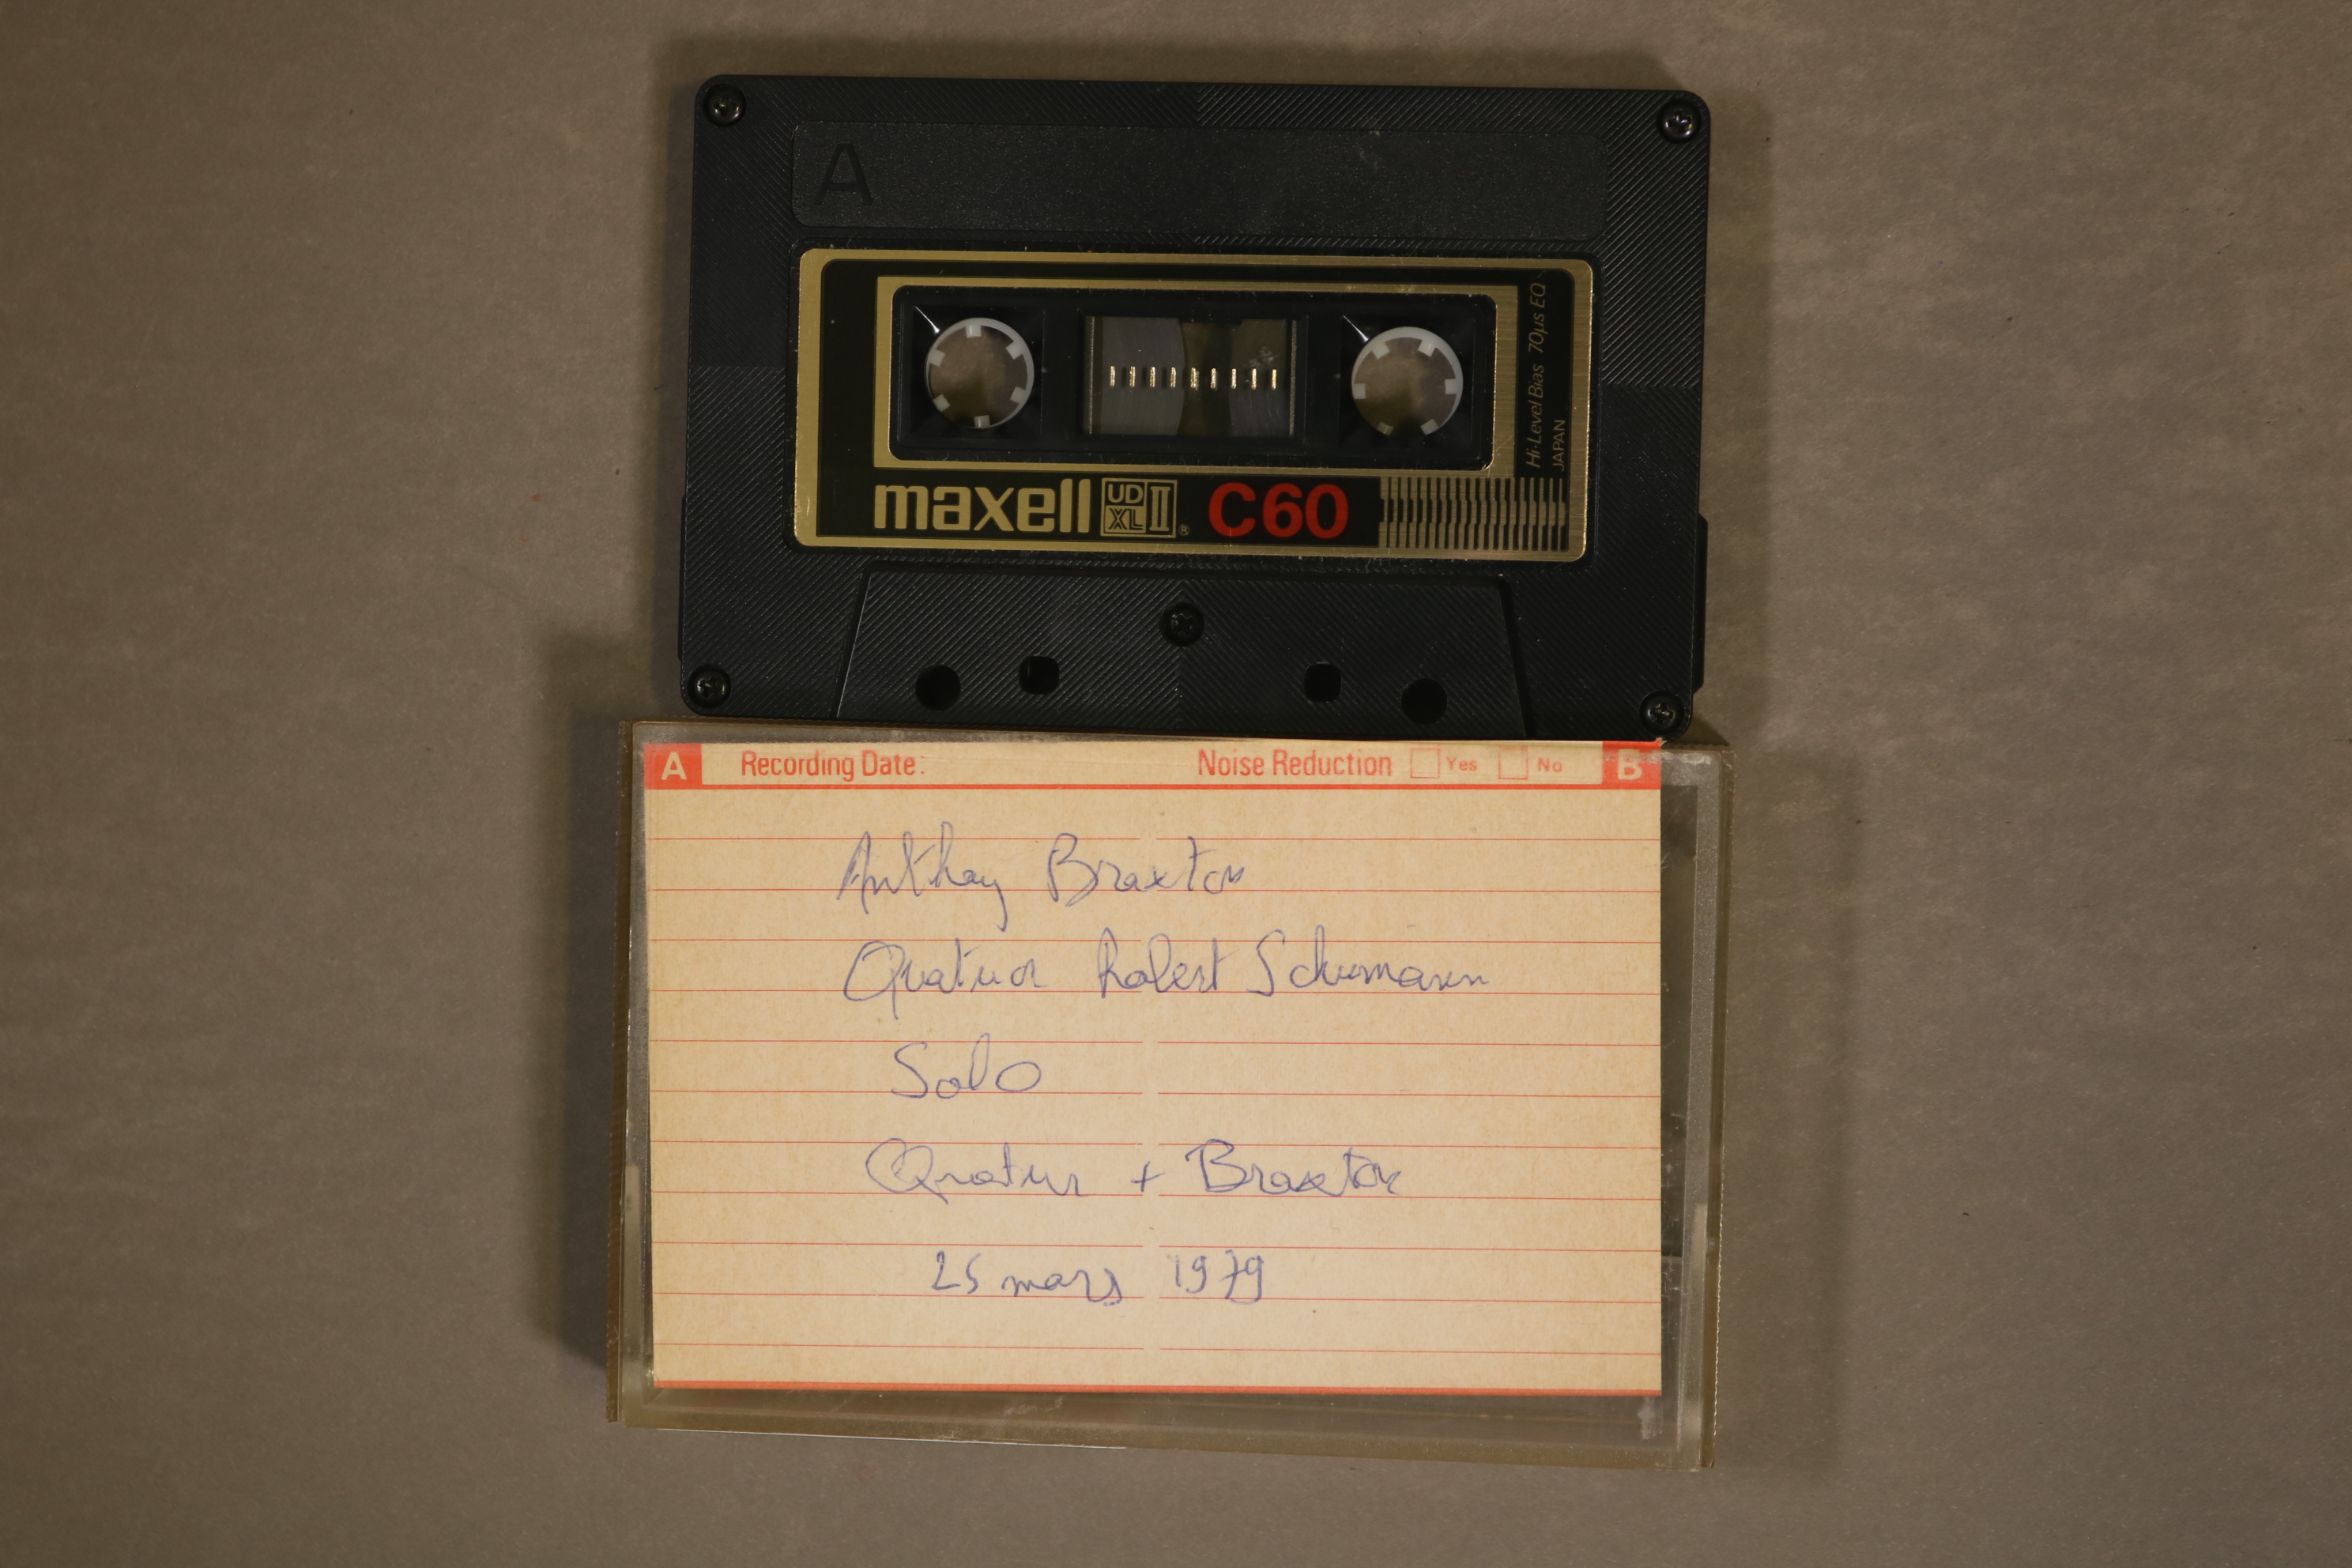 A
Hi-Level Bias 70µs EQ
JAPAN
maxell UD XL II ® C60
A Recording Date: Noise Reduction Yes No B
Anthony Braxton
Quatuor Robert Schumann
Solo
Quatuor + Braxton
25 mars 1979